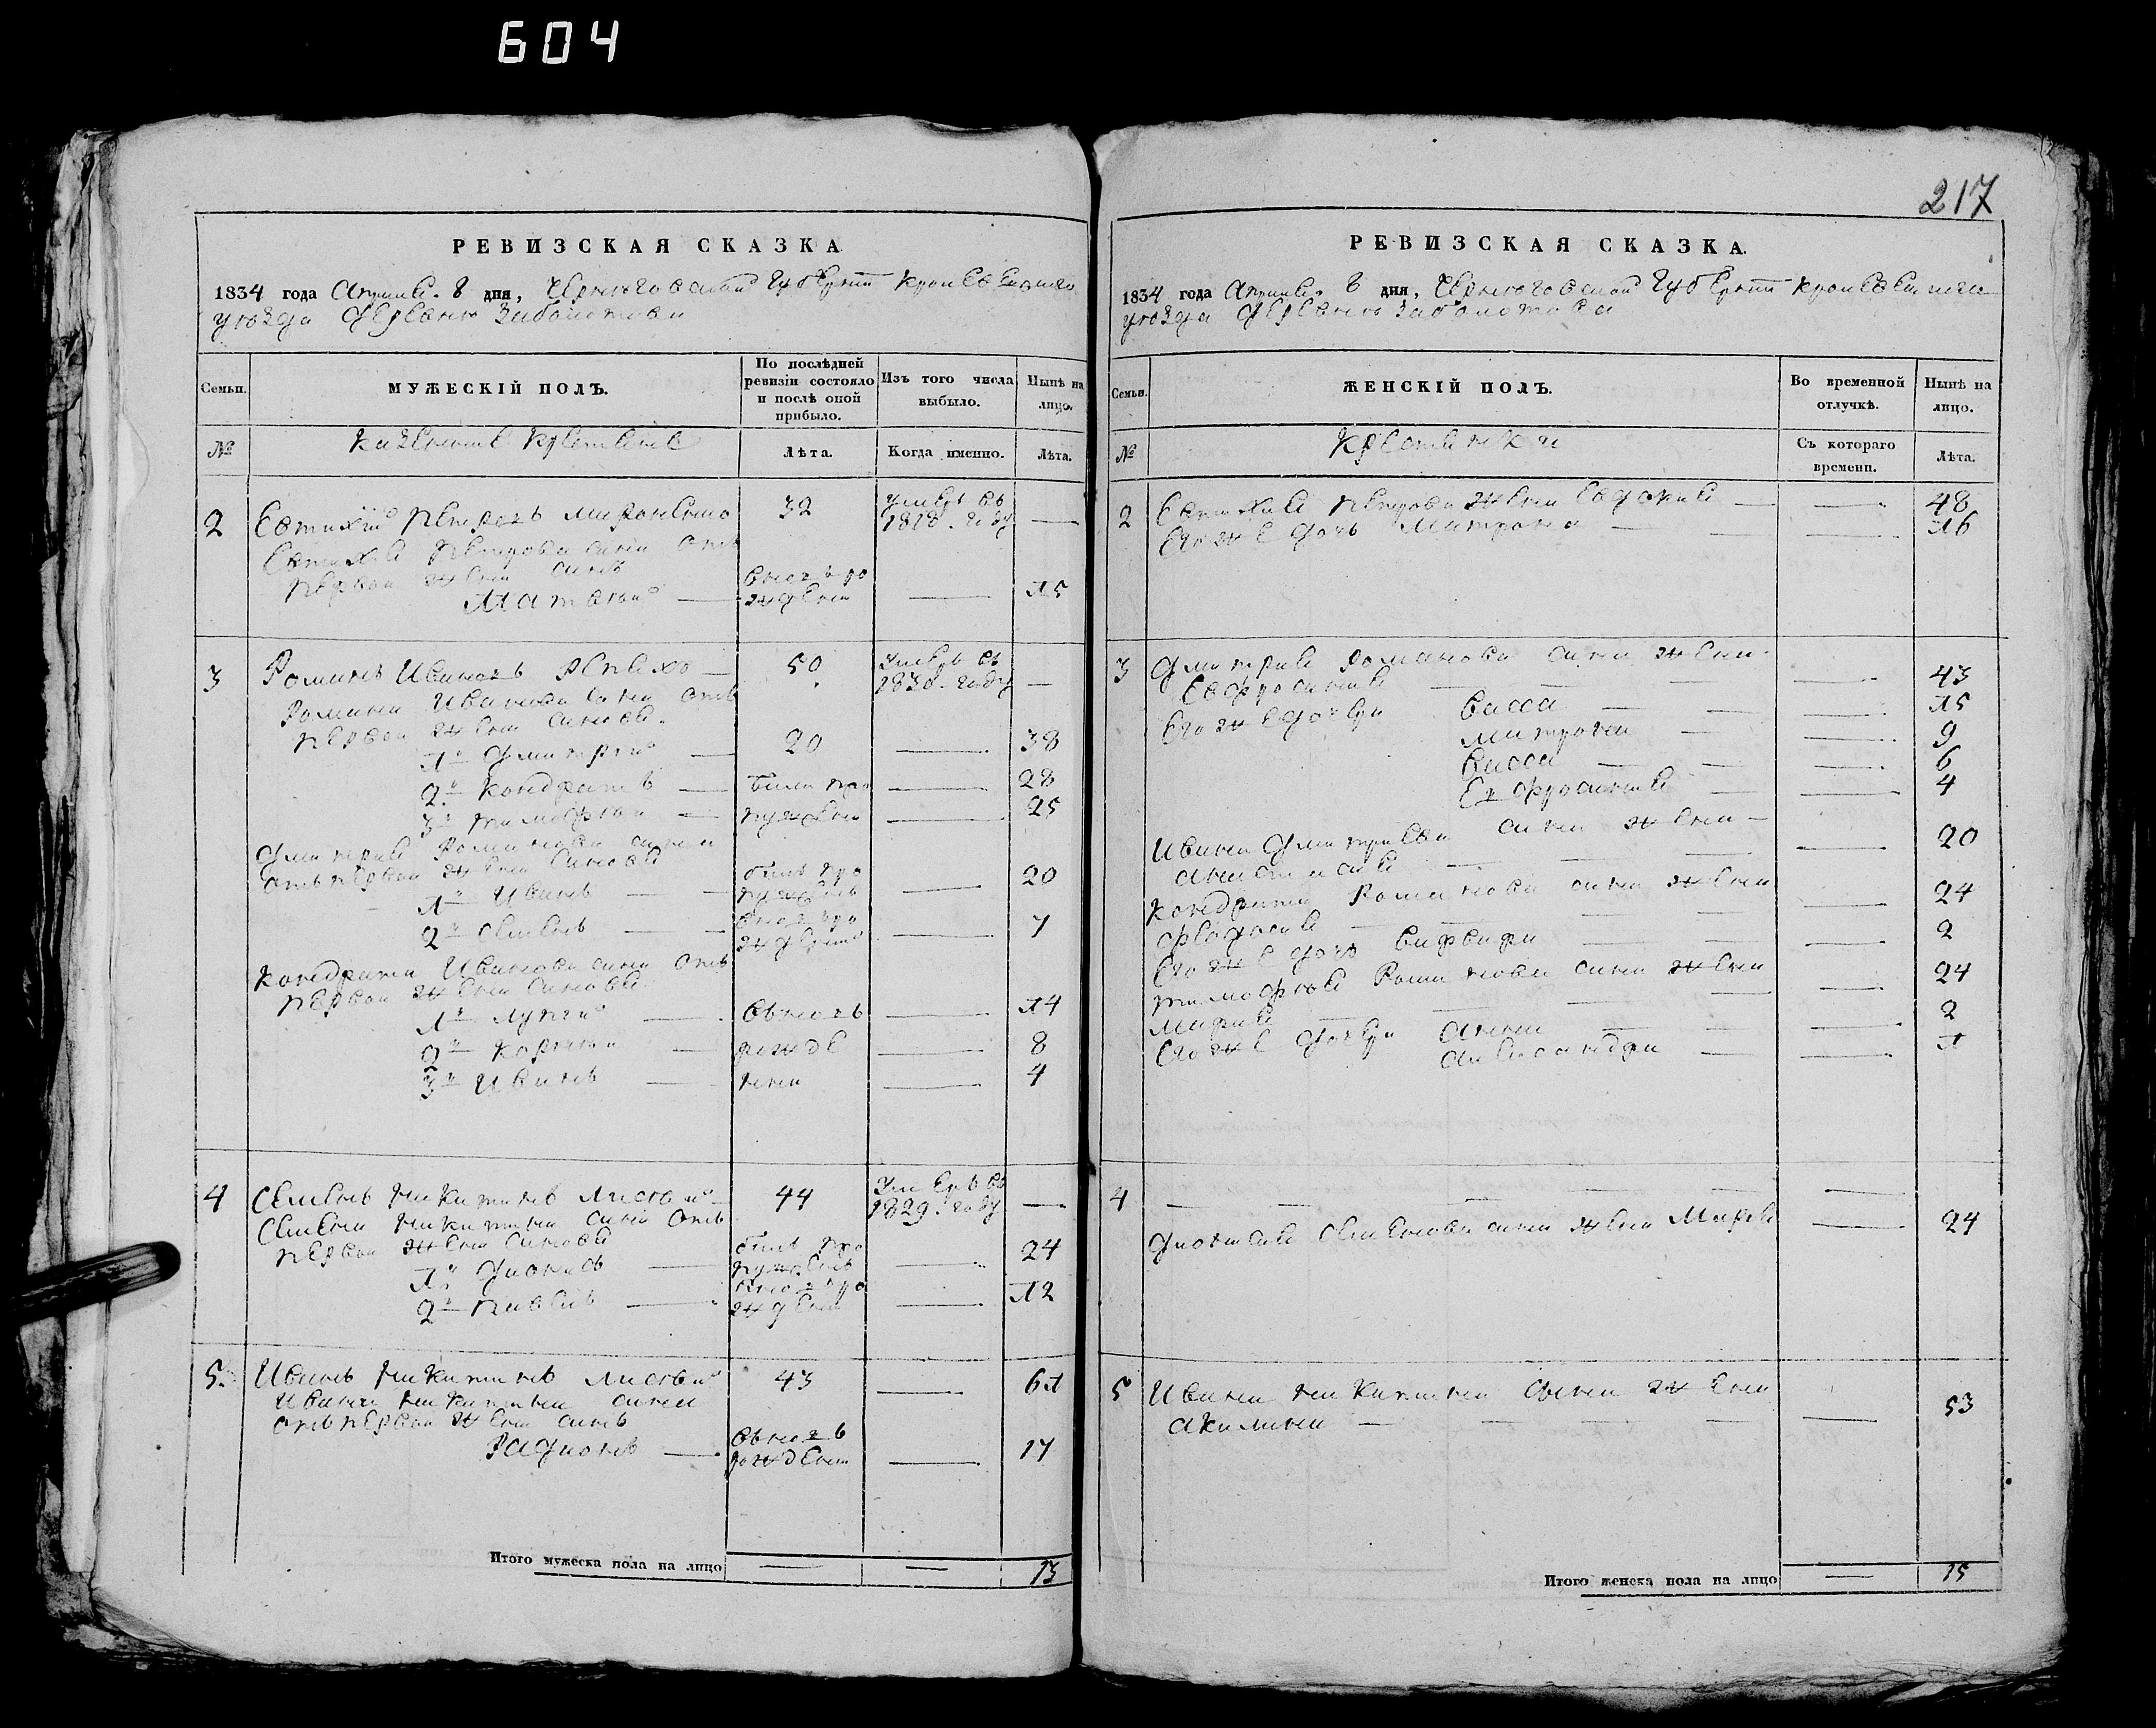 604
217
РЕВИЗСКАЯ СКАЗКА
1834 года Апреля 8 дня, Черниговской Губернии Кролевецкого
уезда деревни Заболотова
Семьи.
МУЖЕСКІЙ ПОЛЪ.
По послѣдней ревизіи состояло и послѣ оной прибыло.
Изъ того числа выбыло.
Нынѣ на лицо.
№
Казенные крестьяне
Лѣта.
Когда именно.
Лѣта.
2 Евтихій Петровъ 32 умеръ въ 1818. году —
Евтихія Петрова сынъ отъ
первой жены сынъ
Матвей — вновь рожденъ — 15
3 Романъ Ивановъ Репяхо — 50 умеръ въ 1830. году —
Романа Иванова сына отъ
первой жены сыновья.
1й Дмитрій — 20 — 38
2й Кондратъ — были про — 28
3й Тимофей — пущены — 25
Дмитрія Романова сына
отъ первой жены сыновья
1й Иванъ — былъ пропущенъ — 20
2й Семенъ — вновь рожденъ — 7
Кондрата Иванова сына отъ
первой жены сыновья
1й — вновь — 14
2й Корней — рожде — 8
3й Иванъ — ны — 4
4 Семенъ Никитинъ 44 умеръ въ 1829. году —
Семена Никитина сына отъ
первой жены сыновья
1й Дионисъ — былъ пропущенъ — 24
2й Павелъ — вновь рожденъ — 12
5. Иванъ Никитинъ 43 — 61
Ивана Никитина сына
отъ первой жены сынъ
Радионъ — вновь рожденъ — 17
Итого мужеска пола на лицо — — 13
РЕВИЗСКАЯ СКАЗКА.
1834 года Апреля 8 дня, Черниговской Губернии Кролевецкого
уезда деревни Заболотова
Семьи.
ЖЕНСКІЙ ПОЛЪ.
Во временной отлучкѣ.
Нынѣ на лицо.
№
Крестьянки
Съ котораго времени.
Лѣта.
2 Евтихия Петрова жена Евдокия — — 48
Его же дочь Матрона — — 16
3 Дмитрия Романова сына жена
Евфросиния — — 43
Его же дочери Васса — — 15
Матрона — — 9
Васса — — 6
Ефросиния — — 4
Ивана Дмитриева сына жена —
Анастасия — — 20
Кондрата Романова сына жена
Феодосия — — 24
Его же дочь Варвара — — 2
Тимофея Романова сына жена
Мария — — 24
Его же дочери Анна — — 2
Александра — — 1
4 — — — —
Дионисия Семенова сына жена Мария — 24
5 Ивана Никитина сына жена
Акилина — — 53
Итого женска пола на лицо — 15